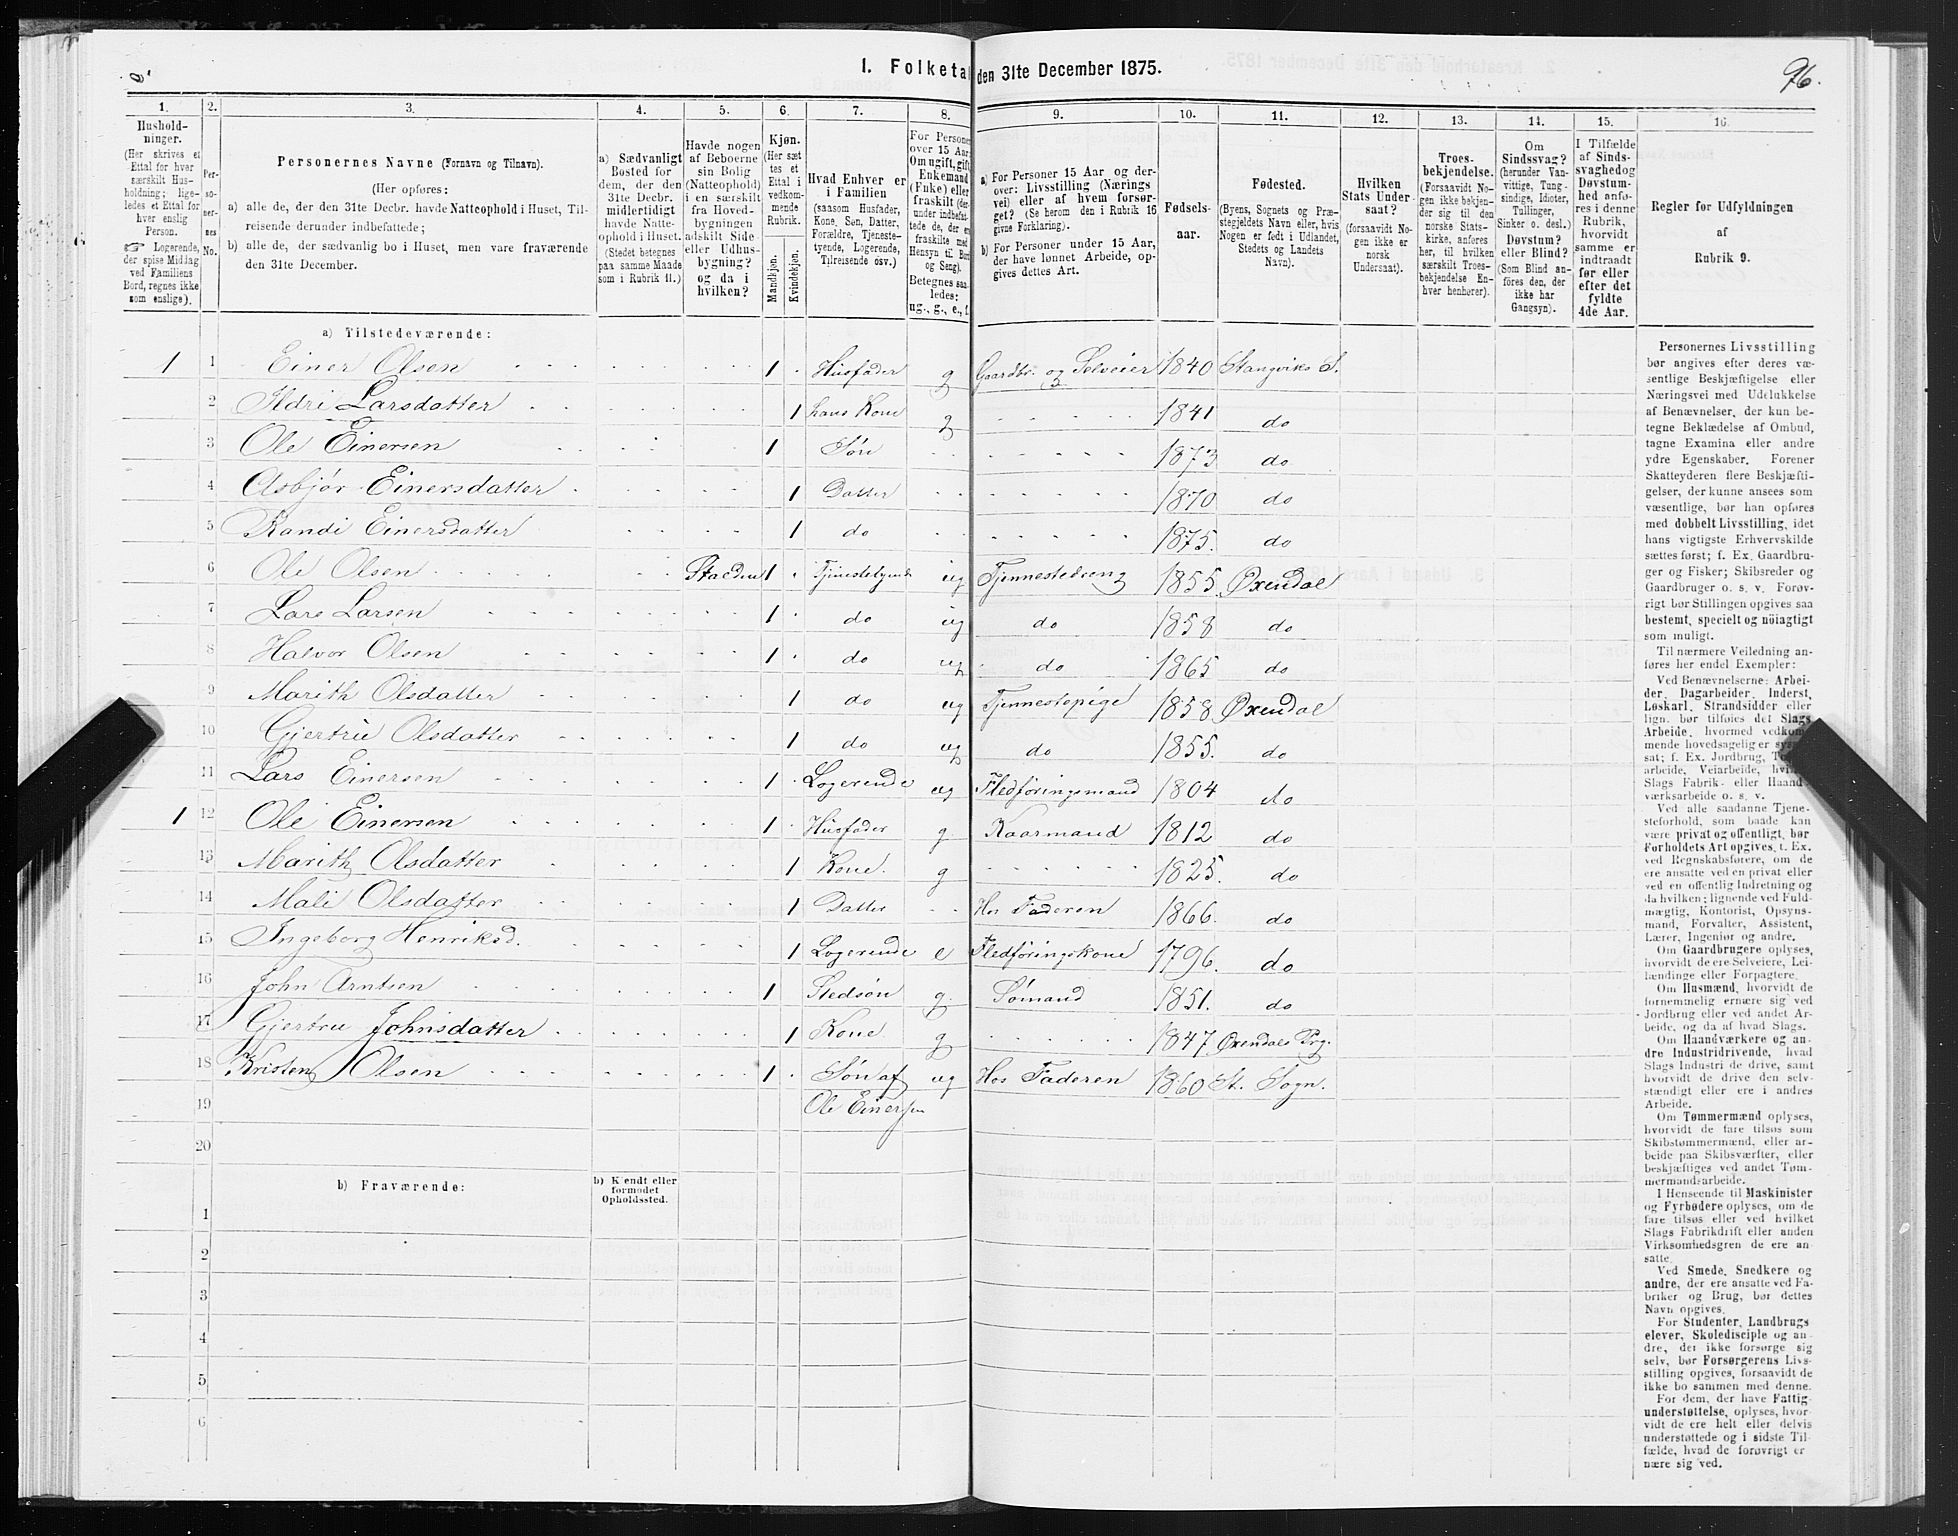 1. Folketal den 31te December 1875.
96.
1. 2. 3. 4. 5. 6. 7. 8. 9. 10. 11. 12. 13. 14. 15. 16.
Husholdninger.
(Her skrives et
Ettal for hver
særskilt Husholdning; ligeledes et Ettal for
hver enslig
Person.
☞ Logerende,
der spise Middag
ved Familiens
Bord, regnes ikke
som enslige).
Personernes No.
Personernes Navne (Fornavn og Tilnavn).
(Her opføres:
a) alle de, der den 31te Decbr. havde Natteophold i Huset, Tilreisende derunder indbefattede;
b) alle de, der sædvanlig bo i Huset, men vare fraværende
den 31te December.
a) Sædvanligt
Bosted for
dem, der den
31te Decbr.
midlertidigt
havde Natteophold i Huset.
(Stedet betegnes
paa samme Maade
som i Rubrik 11.)
Havde nogen
af Beboerne
sin Bolig
(Natteophold)
i en særskilt
fra Hovedbygningen
adskilt Side
eller Udhusbygning?
og da i
hvilken?
Kjøn.
(Her sættes et
Ettal i
vedkommende
Rubrik.
Mandkjøn.
Kvindekjøn.
Hvad Enhver er
i Familien
(saasom Husfader,
Kone, Søn, Datter,
Forældre, Tjenestetyende, Logerende,
Tilreisende osv.)
For Personer
over 15 Aar:
Om ugift, gift,
Enkemand
(Enke) eller
fraskilt
Betegnes saaledes:
ug., g., e., f.
a) For Personer 15 Aar og derover: Livsstilling (Næringsvei) eller af hvem forsørget? (Se herom den i Rubrik 16
givne Forklaring).
b) For Personer under 15 Aar,
der have lønnet Arbeide, opgives dettes Art.
Fødselsaar.
Fødested.
(Byens, Sognets og Præstegjeldets Navn eller, hvis
Nogen er født i Udlandet,
Stedets og Landets
Navn).
Hvilken
Stats Undersaat?
(forsaavidt Nogen ikke er
norsk
Undersaat).
Troesbekjendelse.
(Forsaavidt Nogen ikke bekjender sig til den
norske Statskirke, anføres
her, til hvilken
særskilt Troesbekjendelse Enhver henhører).
Om
Sindssvag?
(herunder Vanvittige, Tungsindige, Idioter,
Tullinger,
Sinker o. desl.)
Døvstum?
eller Blind?
(Som Blind anføres den, der
ikke har
Gangsyn).
I Tilfælde
af Sindssvaghed og
Døvstumhed anføres i denne
Rubrik,
hvorvidt
samme er
indtraadt
før eller
efter det
fyldte
4de Aar.
Regler for Udfyldningen
af
Rubrik 9.
a) Tilstedeværende:
1 1 Einer Olsen 1 Husfader g Gaardbr. og Selveier 1840 Stangviks S.
2 Ildri Larsdatter 1 hans Kone g 1841 do
3 Ole Einersen 1 Søn 1873 do
4 Asbjør Einersdatter 1 Datter 1870 do
5 Randi Einersdatter 1 do 1875. do
6 Ole Olsen 1 ug Tjennestedreng 1855 Øxendal
7 Lars Larsen 1 do ug do 1858 do
8 Halvor Olsen 1 do ug do 1865 do
9 Marith Olsdatter 1 do ug Tjennestepige 1858 Øxendal
10 Gjertru Olsdatter 1 do ug do 1855. do
11 Lars Einersen 1 Logerende ug Fledføringsmand 1804 do
1 12 Ole Einersen 1 Husfader g. Kaarmand 1812 do
13 Marith Olsdatter 1 Kone. g 1825. do
14 Mali Olsdatter 1 Datter Hos Faderen 1866. do
15 Ingeborg Henriksd. 1 Logerende e Fledføringskone 1796. do
16 John Arntsen 1 Stedsøn g. Sømand 1851. do
17 Gjertru Johnsdatter 1 Kone g 1847 Øxendals Prg.
18 Kristen Olsen 1 Søn af ug Hos Faderen 1860 St. Sogn.
19 Ole Einersen
20
b) Fraværende:
b) Kjendt eller
formodet
Opholdssted.
1
2
3
4
5
6
Personernes Livsstilling
bør angives efter deres væsentlige Beskjæftigelse eller
Næringsvei med Udelukkelse
af Benævnelser, der kun betegne Beklædelse af Ombud,
tagne Examina eller andre
ydre Egenskaber. Forener
Skatteyderen flere Beskjæftigelser, der kunne ansees som
væsentlige, bør han opføres
med dobbelt Livsstilling, idet
hans vigtigste Erhvervskilde
sættes først; f. Ex. Gaardbruger og Fisker; Skibsreder og
Gaardbruger o. s. v. Forøvrigt bør Stillingen opgives saa
bestemt, specielt og nöiagtigt
som muligt.
Til nærmere Veiledning anføres her endel Exempler:
Ved Benævnelserne: Arbeider, Dagarbeider, Inderst,
Løskarl, Strandsidder eller
lign. bør tilføies det Slags
Arbeide, hvormed vedkommende hovedsagelig er syssat; f. Ex. Jordbrug,
arbeide, Veiarbeide,
Slags Fabrik- eller Haandværksarbeide o. s. v.
Ved alle saadanne Tjenesteforhold, som baade kan
være privat og offentligt, bør
Forholdets Art opgives, t. Ex.
ved Regnskabsførere, om de
ere ansatte ved en privat eller
ved en offentlig Indretning og
da hvilken; lignende ved Fuldmægtig, Kontorist, Opsynsmand, Forvalter, Assistent,
Lærer, Ingeniør og andre.
Om Gaardbrugere oplyses,
hvorvidt de ere Selveiere, Leilændinge eller Forpagtere.
Om Husmænd, hvorvidt de
fornemmelig ernære sig ved
Jordbrug eller ved andet Arbeide, og da af hvad Slags.
Om Haandværkere og andre Industridrivende, hvad
Slags Industri de drive, samt
hvorvidt de drive den selvstændigt eller ere i andres
Arbeide.
Om Tømmermænd oplyses,
hvorvidt de fare tilsøs som
Skibstømmermænd, eller arbeide paa Skibsværfter, eller
beskjæftiges ved andet Tømmermandsarbeide.
I Henseende til Maskinister
og Fyrbødere oplyses, om de
fare tilsøs eller ved hvilket
Slags Fabrikdrift eller anden
Virksomhedsgren de ere ansatte.
Ved Smede, Snedkere og
andre, der ere ansatte ved Fabriker og Brug, bør dettes
Navn opgives.
For Studenter, Landbrugselever, Skoledisciple og andre, der ikke forsørge sig
selv, bør Forsørgerens Livsstilling opgives, forsaavidt de
ikke bo sammen med denne.
For dem, der have Fattigunderstøttelse, oplyses, hvorvidt de ere helt eller delvis
understøttede og i sidste Tilfælde, hvad de forøvrigt ernære sig ved.